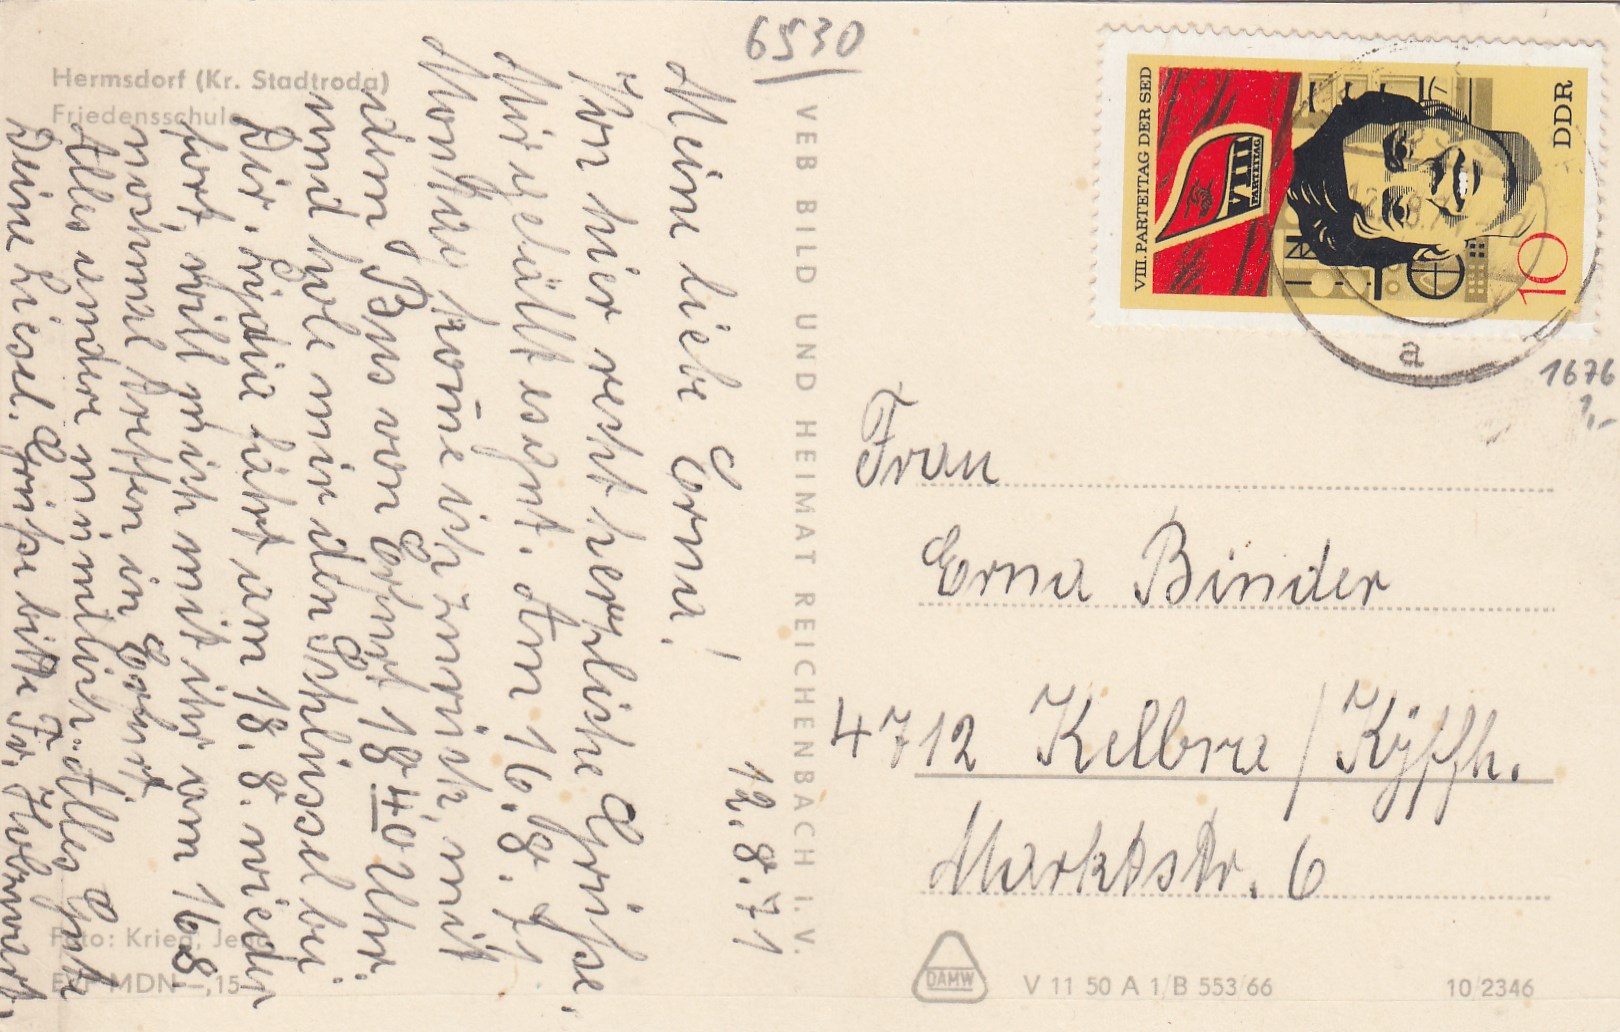 6530
Hermsdorf (Kr. Stadtroda)
Friedensschule
12.8.71
Meine liebe Erna!
Von hier recht herzliche Grüße.
Mir gefällt es gut. Am 16.8.71
Montag kome ich zurück, mit
dem Bus von Erfurt 18 40 Uhr
und hole mir den Schlüssel bei
Dir. Lydia fährt am 18.8. wieder
fort, will mich mit ihr am 16.8
nochmal treffen in Erfurt
Alles andere mündlich. Alles Gute
Deine Liesel. Grüße bitte Fr.
Foto: Krieg, Jena
EVP MDN —,15
VEB BILD UND HEIMAT REICHENBACH I. V.
VIII. PARTEITAG DER SED
VIII
PARTEITAG
DDR
10
a
1676
1,-
Frau
Erna Binder
4712 Kelbra / Kyffh.
Marktstr. 6
DAMW
V 11 50 A 1/B 553/66
10/2346